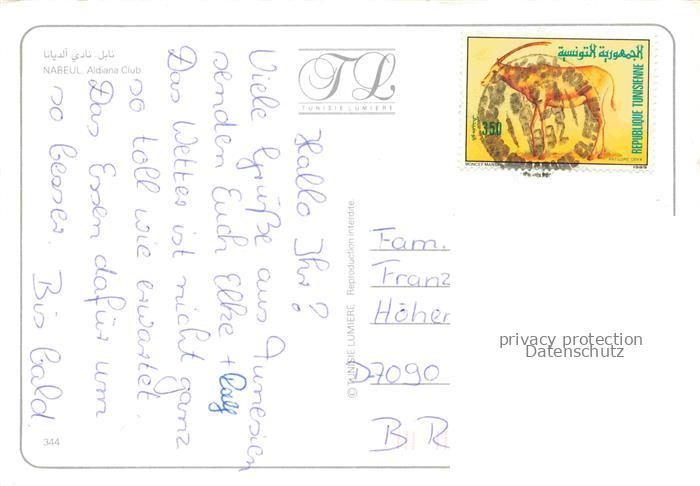 نابل. نادي ألديانا
NABEUL. Aldiana Club.
TL
TUNISIE LUMIERE
الجمهورية التونسية
REPUBLIQUE TUNISIENNE
350
MONCEF MANSER
ANTILOPE ORYX
1989
Hallo Ihr!
Viele Grüße aus Tunesien
senden Euch Elke + Ralf
Das Wetter ist nicht ganz
so toll wie erwartet.
Das Essen dafür um
so besser. Bis bald.
© TUNISIE LUMIERE Reproduction interdite.
Fam.
Franz
Höhen
D7090
BR
344
privacy protection
Datenschutz